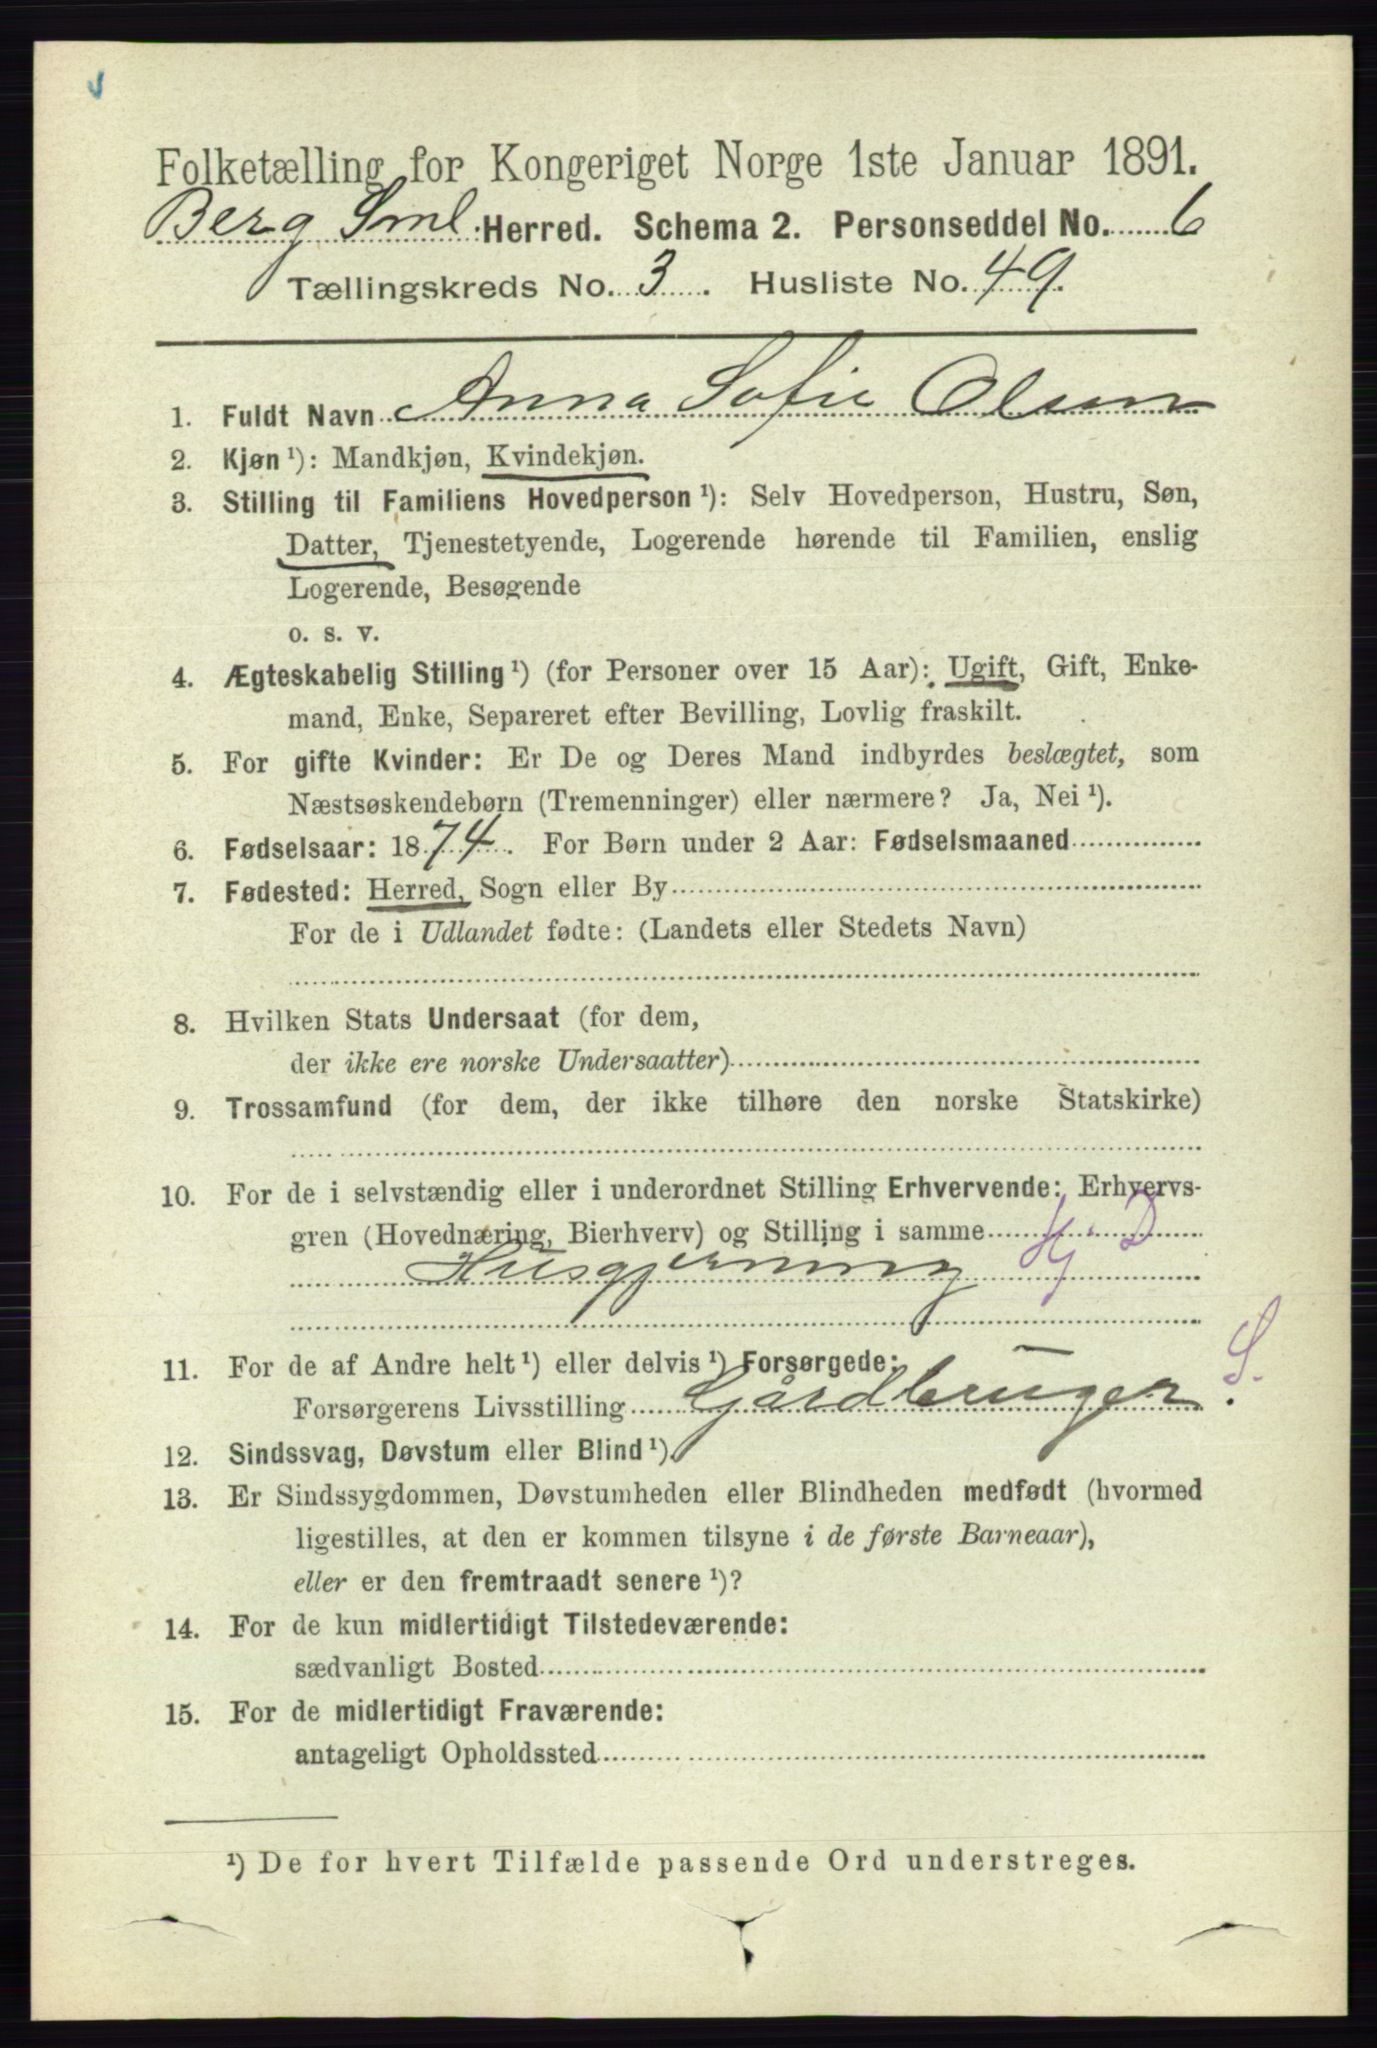 Folketælling for Kongeriget Norge 1ste Januar 1891.
Berg Sml Herred. Schema 2. Personseddel No. 6
Tællingskreds No. 3. Husliste No. 49.
1. Fuldt Navn Anna Sofie Olsen
2. Kjøn ¹): Mandkjøn, Kvindekjøn.
3. Stilling til Familiens Hovedperson ¹): Selv Hovedperson, Hustru, Søn,
Datter, Tjenestetyende, Logerende hørende til Familien, enslig
Logerende, Besøgende
o. s. v.
4. Ægteskabelig Stilling ¹) (for Personer over 15 Aar): Ugift, Gift, Enke-
mand, Enke, Separeret efter Bevilling, Lovlig fraskilt.
5. For gifte Kvinder: Er De og Deres Mand indbyrdes beslægtet, som
Næstsøskendebørn (Tremenninger) eller nærmere? Ja, Nei ¹).
6. Fødselsaar: 1874. For Børn under 2 Aar: Fødselsmaaned
7. Fødested: Herred, Sogn eller By
For de i Udlandet fødte: (Landets eller Stedets Navn)
8. Hvilken Stats Undersaat (for dem,
der ikke ere norske Undersaatter)
9. Trossamfund (for dem, der ikke tilhøre den norske Statskirke)
10. For de i selvstændig eller i underordnet Stilling Erhvervende: Erhvervs-
gren (Hovednæring, Bierhverv) og Stilling i samme
Husgjerning
11. For de af Andre helt ¹) eller delvis ¹) Forsørgede:
Forsørgerens Livsstilling Gårdbruger S.
12. Sindssvag, Døvstum eller Blind ¹).
13. Er Sindssygdommen, Døvstumheden eller Blindheden medfødt (hvormed
ligestilles, at den er kommen tilsyne i de første Barneaar),
eller er den fremtraadt senere ¹)?
14. For de kun midlertidigt Tilstedeværende:
sædvanligt Bosted
15. For de midlertidigt Fraværende:
antageligt Opholdssted
¹) De for hvert Tilfælde passende Ord understreges.